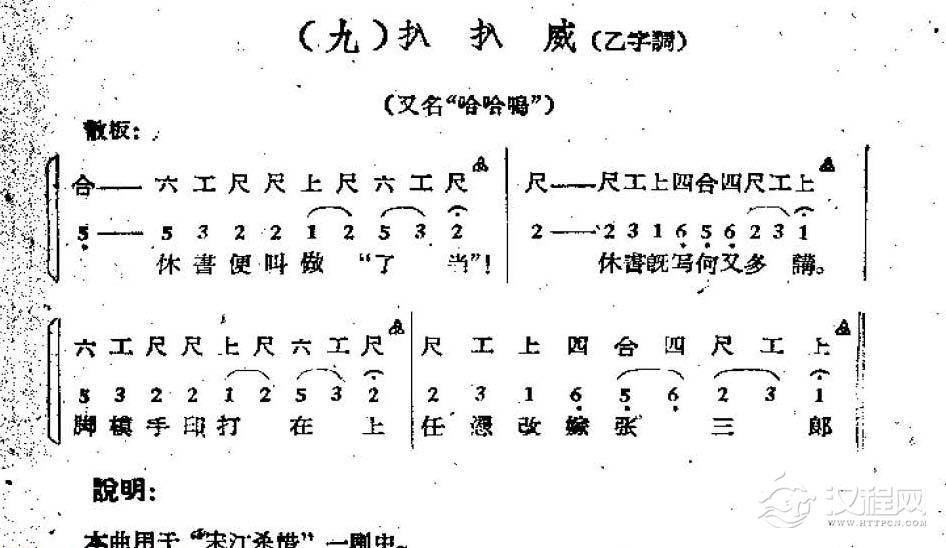 (九)扒 扒 威(乙字調)
(又名“哈哈鳴”)
散板:
合—— 六 工 尺 尺 上 尺 六 工 尺 尺——尺工上四合四尺工上
5—— 5 3 2 2 1 2 5 3 2 2——2 3 1 6 5 6 2 3 1
休 書 便 叫 做 “了 当”! 休 書 旣 写 何 又 多 講。
六 工 尺 尺 上 尺 六 工 尺 尺 工 上 四 合 四 尺 工 上
5 3 2 2 1 2 5 3 2 2 3 1 6 5 6 2 3 1
脚 模 手 印 打 在 上 任 憑 改 嫁 张 三 郎
說明:
本曲用于“宋江杀惜”一剧中。
汉程网
WWW.HTTPCN.COM